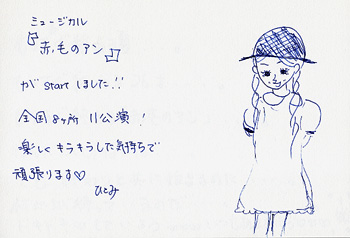 ミュージカル
『赤毛のアン』
がstartしました!!
全国8ヶ所 11公演!
楽しくキラキラした気持ちで
頑張ります♡
ひとみ